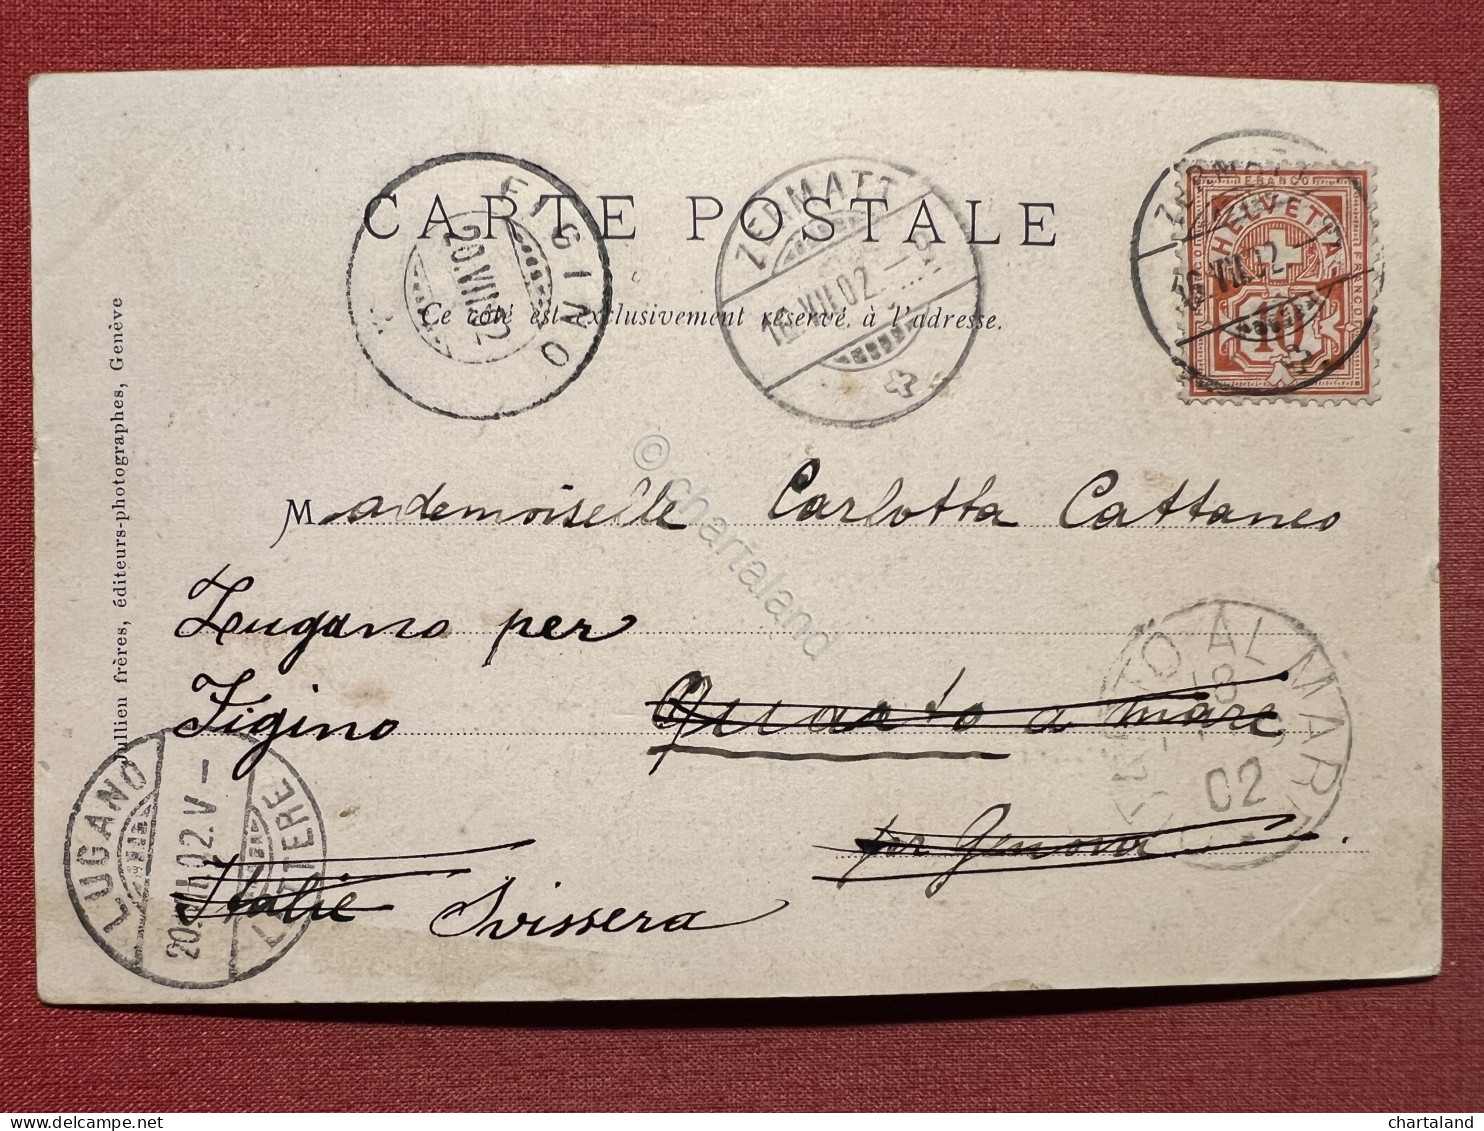 CARTE POSTALE
Ce côté est exclusivement réservé à l'adresse.
FIGINO
20.VII.02
ZERMATT
16.VII.02.-9
ZERMATT
16.VII.02
FRANCO
HELVETIA
10
Mademoiselle Carlotta Cattaneo
Lugano per
Figino
Quarto a mare
per Genova.
Italie Svissera
QUARTO AL MARE
18
02
LUGANO
LETTERE
20.VII.02.V-
Jullien frères, éditeurs-photographes, Genève
© chartaland
chartaland